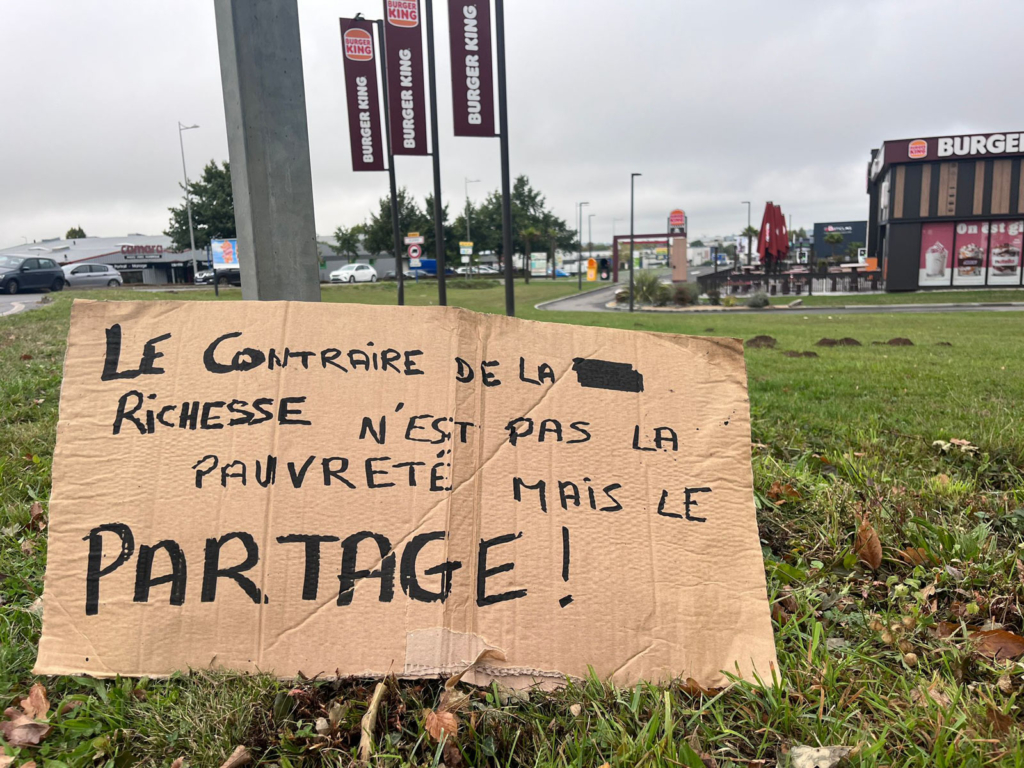 BURGER KING
BURGER KING
BURGER KING
BURGER KING
BURGER KING
BURGER
LE CONTRAIRE DE LA
RICHESSE N'EST PAS LA
PAUVRETÉ MAIS LE
PARTAGE !